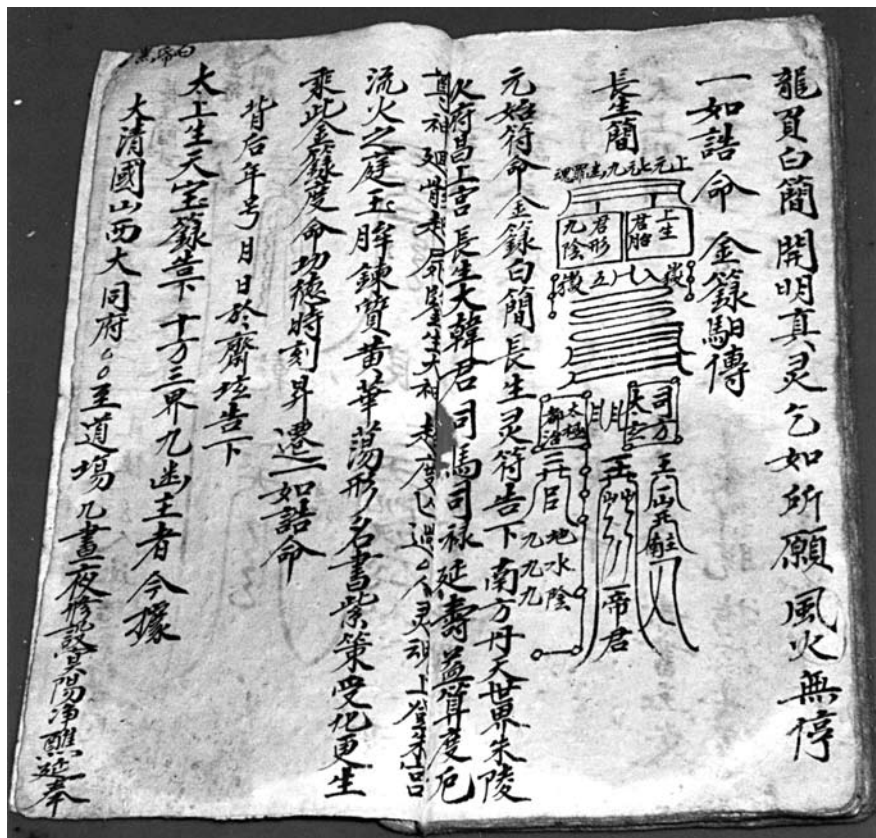 龍頁白簡開明真灵乞如所願風火無停
一如誥命　金籙馹傳
長生簡
上元七元九幽罪魂
上生君胎
君形九陰
五
司方
太玄
太極都治
王
帝君
地水陰
九九九
元始符命金籙白簡長生灵符告下南方丹天世界朱陵
火府昌上宮長生大韓君司馬司禄延壽益算度厄
尊神廻骸起屍𡱈生大神起度亡過〻人灵魂上登朱宮
流火之庭玉眸鍊質黄華蕩形名書紫策受化更生
乘此金籙度命功德時刻昇遷一如誥命
背后年号月日於齋坛告下
太上生天宝籙告下十方三界九幽主者今據
大清國山西大同府〻〻至道場几晝夜修設冥陽净醮延奉